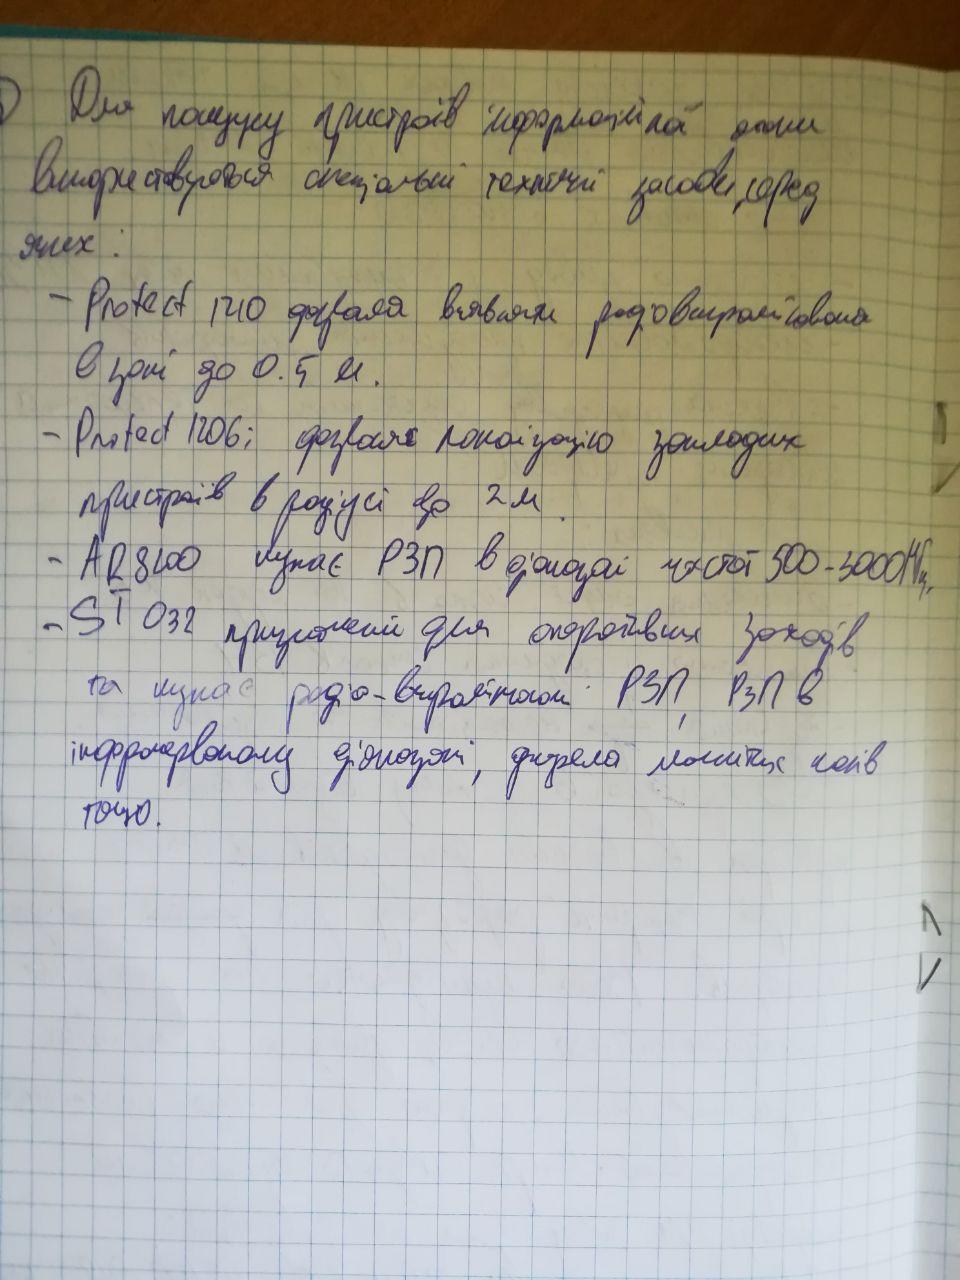 Для пошуку пристроїв інформаційної атаки
використовуються спеціальні технічні засоби, серед
яких:
- Protect 1210 дозволя виявляти радіовипромінювання
в зоні до 0.5 м.
- Protect 1206i дозволяє локалізацію закладних
пристроїв в радіусі до 2 м.
- AR8200 шукає РЗП в діапазоні частот 500-3000МГц.
- ST 032 призначений для оперативних заходів
та шукає радіо-випромінюючі РЗП, РЗП в
інфрачервоному діапазоні, джерела магнітних полів
тощо.